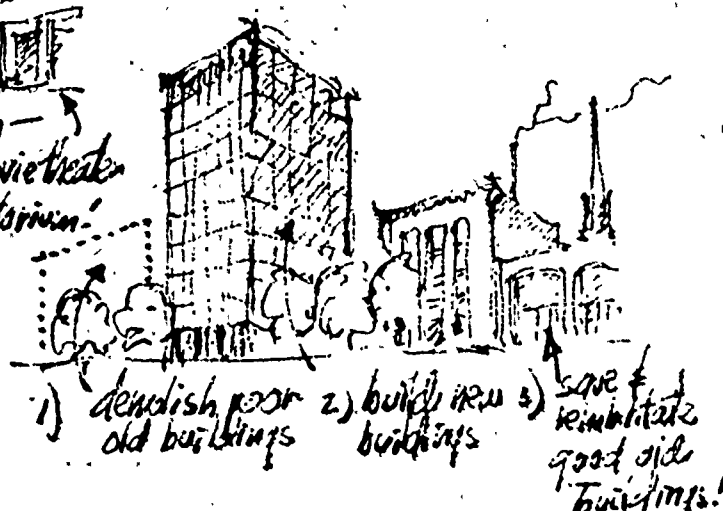 movie theater
auditorium!
1) demolish poor
old buildings
2) build new
buildings
3) save &
rehabilitate
good old
buildings!